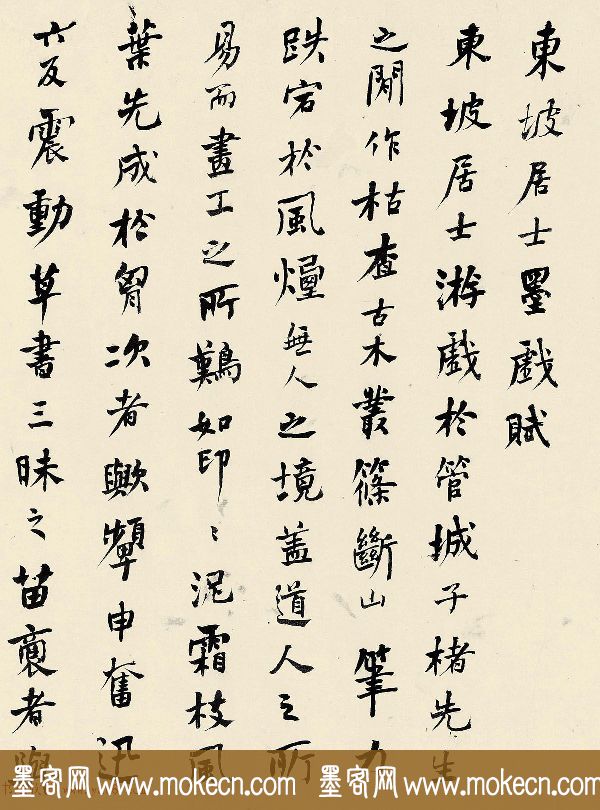 東坡居士墨戲賦
東坡居士游戲於管城子楮先生
之閒作枯槎古木叢篠斷山筆力
跌宕於風煙無人之境盖道人之所
易而畫工之所難如印〻泥霜枝風
葉先成於胷次者歟顰申奮迅
六反震動草書三昧之苗裔者歟
墨客网 www.mokecn.com 墨客网 www.mokecn.com